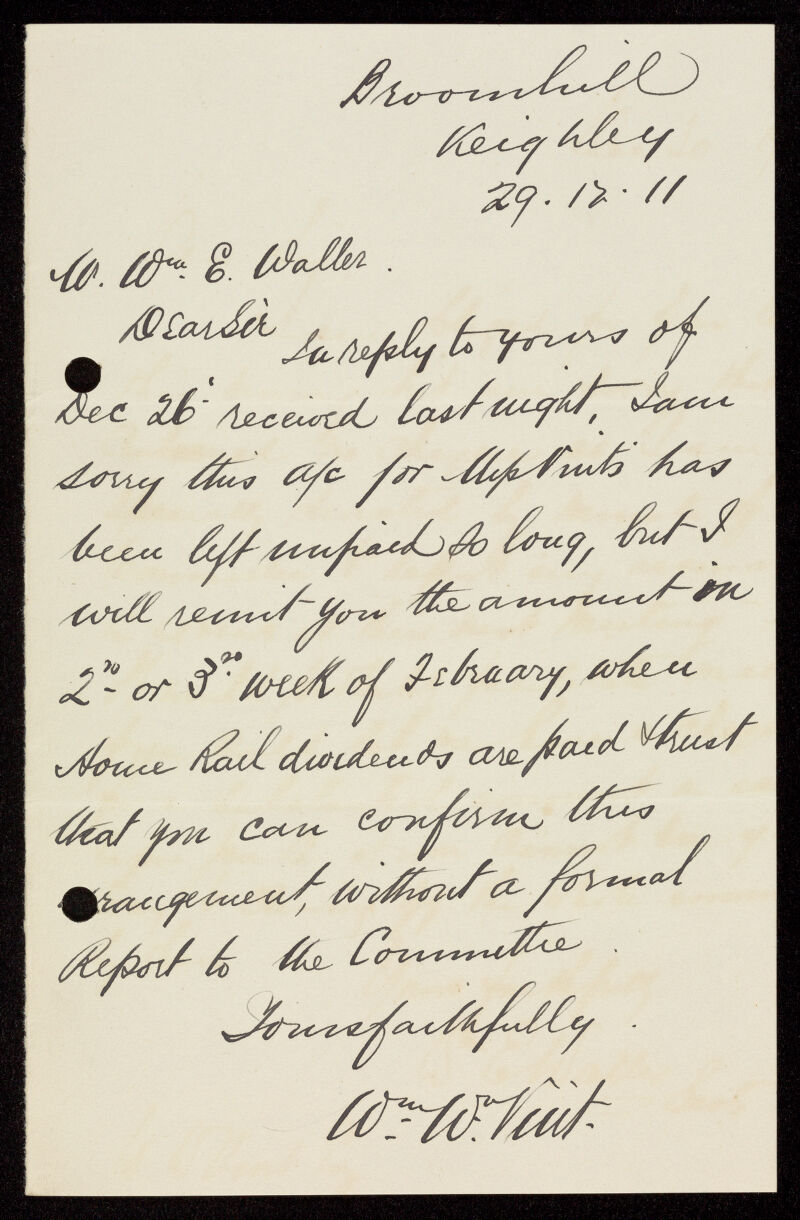 Broomhill
Keighley
29.12.11
Wm. E. Waller.
Dear Sir
In reply to yours of
Dec 26 received last night, I am
sorry this a/c for Miss Vint's has
been left unpaid so long, but I
will remit you the amount in
2nd or 3rd week of February, when
Home Rail dividends are paid & trust
that you can confirm this
arrangement, without a formal
Report to the Committee.
Yours faithfully.
Wm. Wn. Vint.